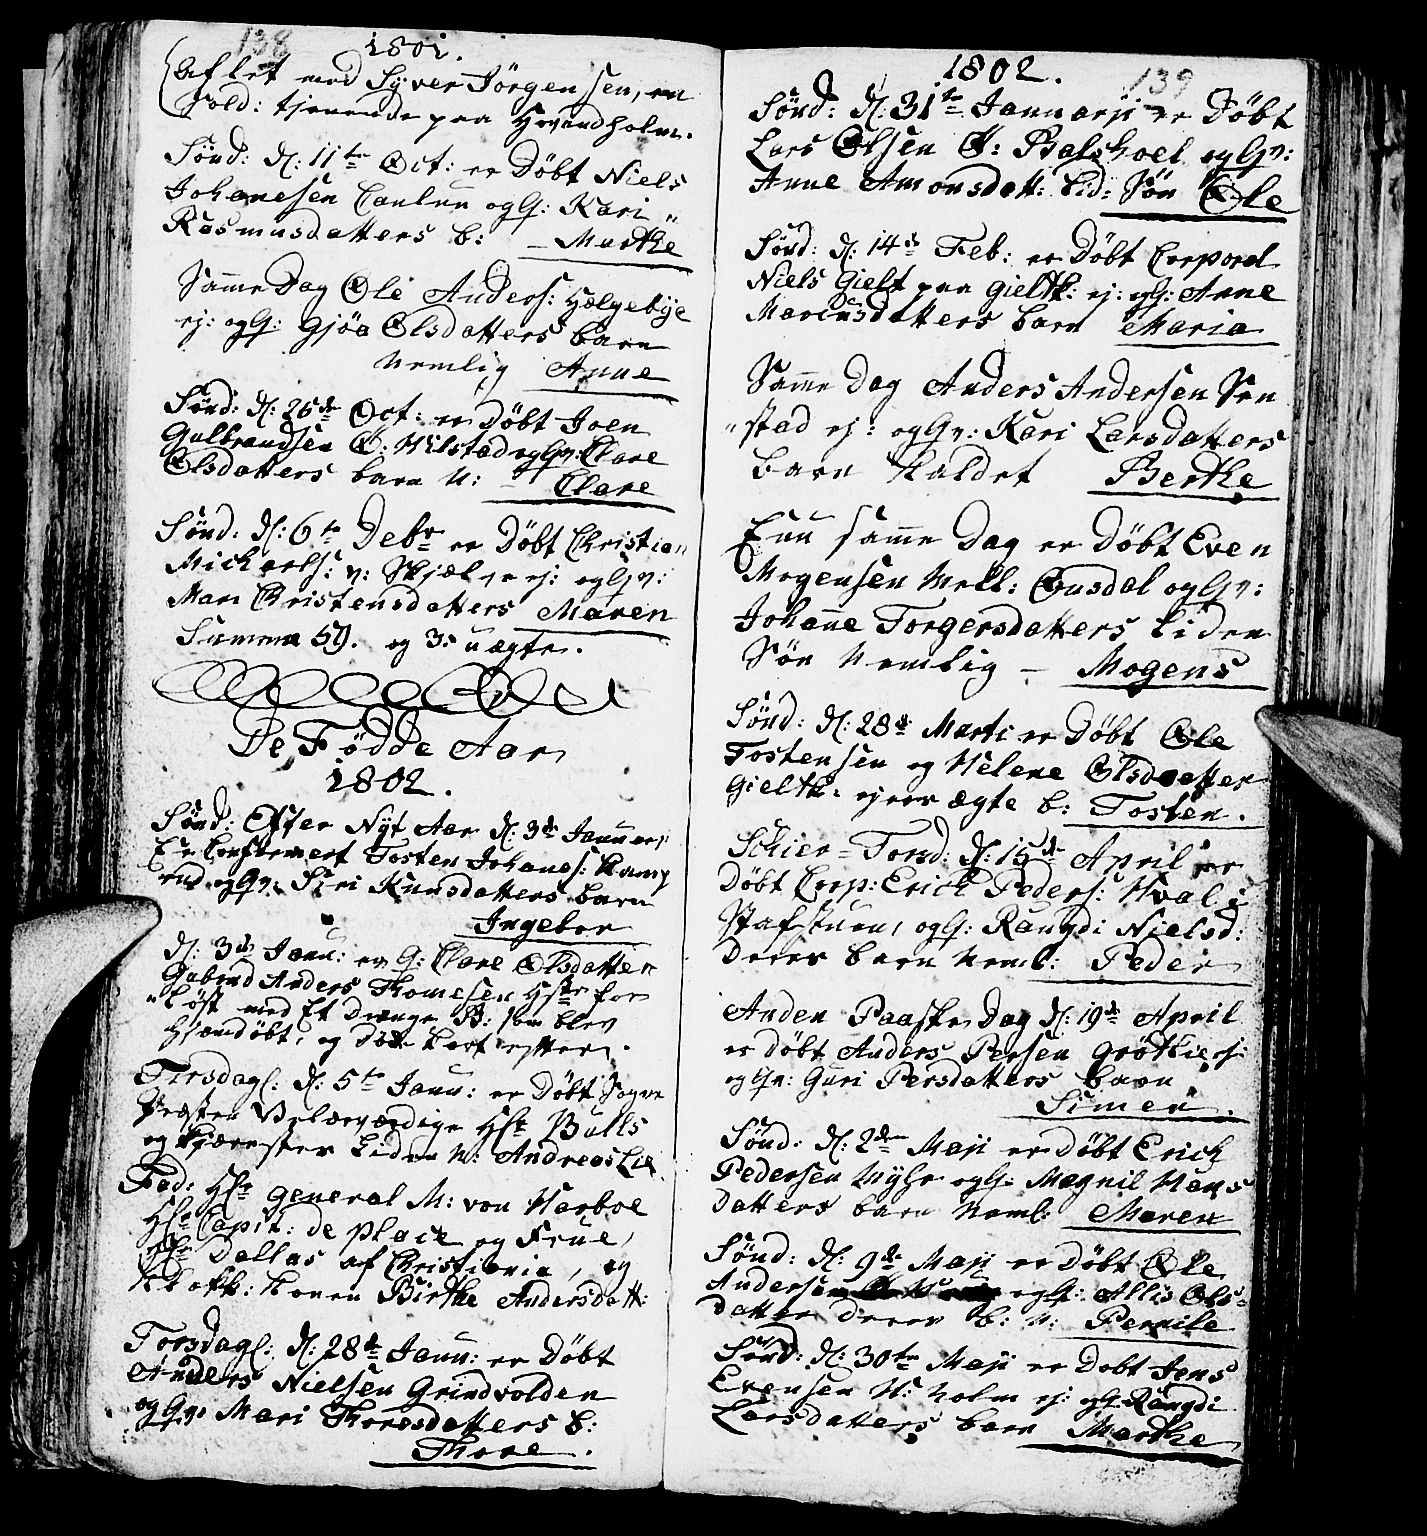 138
1801.
Aflet med Syver Jörgensen, en
Sold: tjenende paa Hovindholm.
Sönd: d: 11te Oct: er Döbt Niels
Johanesen og G: Kari
Rasmusdatters b: Marthe
Samme Dag Ole Anders: Hælgebye
ej: og G: Gjöa Olsdatters barn
Nemlig Anne
Sönd: d: 25de Oct: er Döbt Joen
Gulbrandsen Ø: Hilstad og Gv: Clare
Olsdatters barn N: Clare
Sönd: d: 6te Debr er Döbt Christian
Michaels: v: Skjæl ej: og Gv:
Mari Christensdatters Maren
Summa 59. og 3. uægte.
De Födde Aar
1802.
Sönd: Efter Nyt Aar d: 3de Januarj
Er Confirmert Tosten Johanes:
rud og Gv: Siri Knusdatters barn
Ingebor
d: 3de Janu: er G: Clare Olsdatter
Anders Thomesen for
löst med Et Drenge B: som blev
Hjemdöbt, og Döde kort efter.
Tirsdag: d: 5te Janu: er Döbt Sogne
Præsten Velærværdige Hr: Bulls
og Kjærestes Liden N: Andreas Lie
Fad: Hr General M: von Harboe
Hr Capit: de Place og Frue,
Hr Dallas af Christiania, og
Klokk: Konen Birthe Andersdatt:
Torsdag: d: 28de Janu: er Döbt
Anders Nielsen Grindvolden
og Gv: Mari Thoresdatters b:
Thore.
1802.
139
Sönd: d: 31te Januarji er Döbt
Lars Olsen Ø: Balshoel og Gv:
Anne Amonsdatt: Lid: Sön Ole
Sönd: d: 14de Feb: er Döbt Corporal
Niels Gielt paa Gieltk: ej: og G: Anne
Mariusdatters barn Maria
Samme Dag Anders Andersen Sen
stad ej: og Gv: Kari Larsdatters
barn Kaldet Berthe
Enn samme Dag er Döbt Even
Mogensen Mell: Ousdal og Gv:
Johanne Torgersdatters Liden
Sön Nemlig – Mogens
Sönd: d: 28de Marti er Döbt Ole
Tostensen og Helene Olsdatter
Gieltk: ejeres ægte b: Tosten.
Schier-Torsd: d: 15de April er
Döbt Corp: Erich Peders: Hval i
Stafstuen, og G: Rangdi Nielsd:
Deres barn Neml: Peder
Anden Paaske Dag d: 19de April
er döbt Anders Persen Gröthe ej:
og Gv: Guri Persdatters barn
Simen.
Sönd: d: 2den Maji er döbt Erich
Pedersen Myhr og G: Magnil Hans
datters barn Neml: Maren
Sönd: d: 9de Maji er döbt Ole
Andersen og G: Allis Ols-
datter deres b: N: Pernile
Sönd: d: 30te Maji er Döbt Jens
Evensen N: Holm ej: og G: Rangdi
Larsdatters barn Marthe